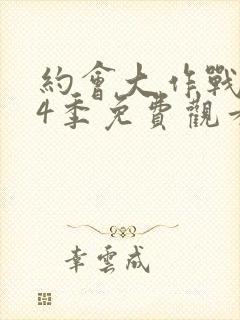 約會大作戰
4季免費觀
幸雲成